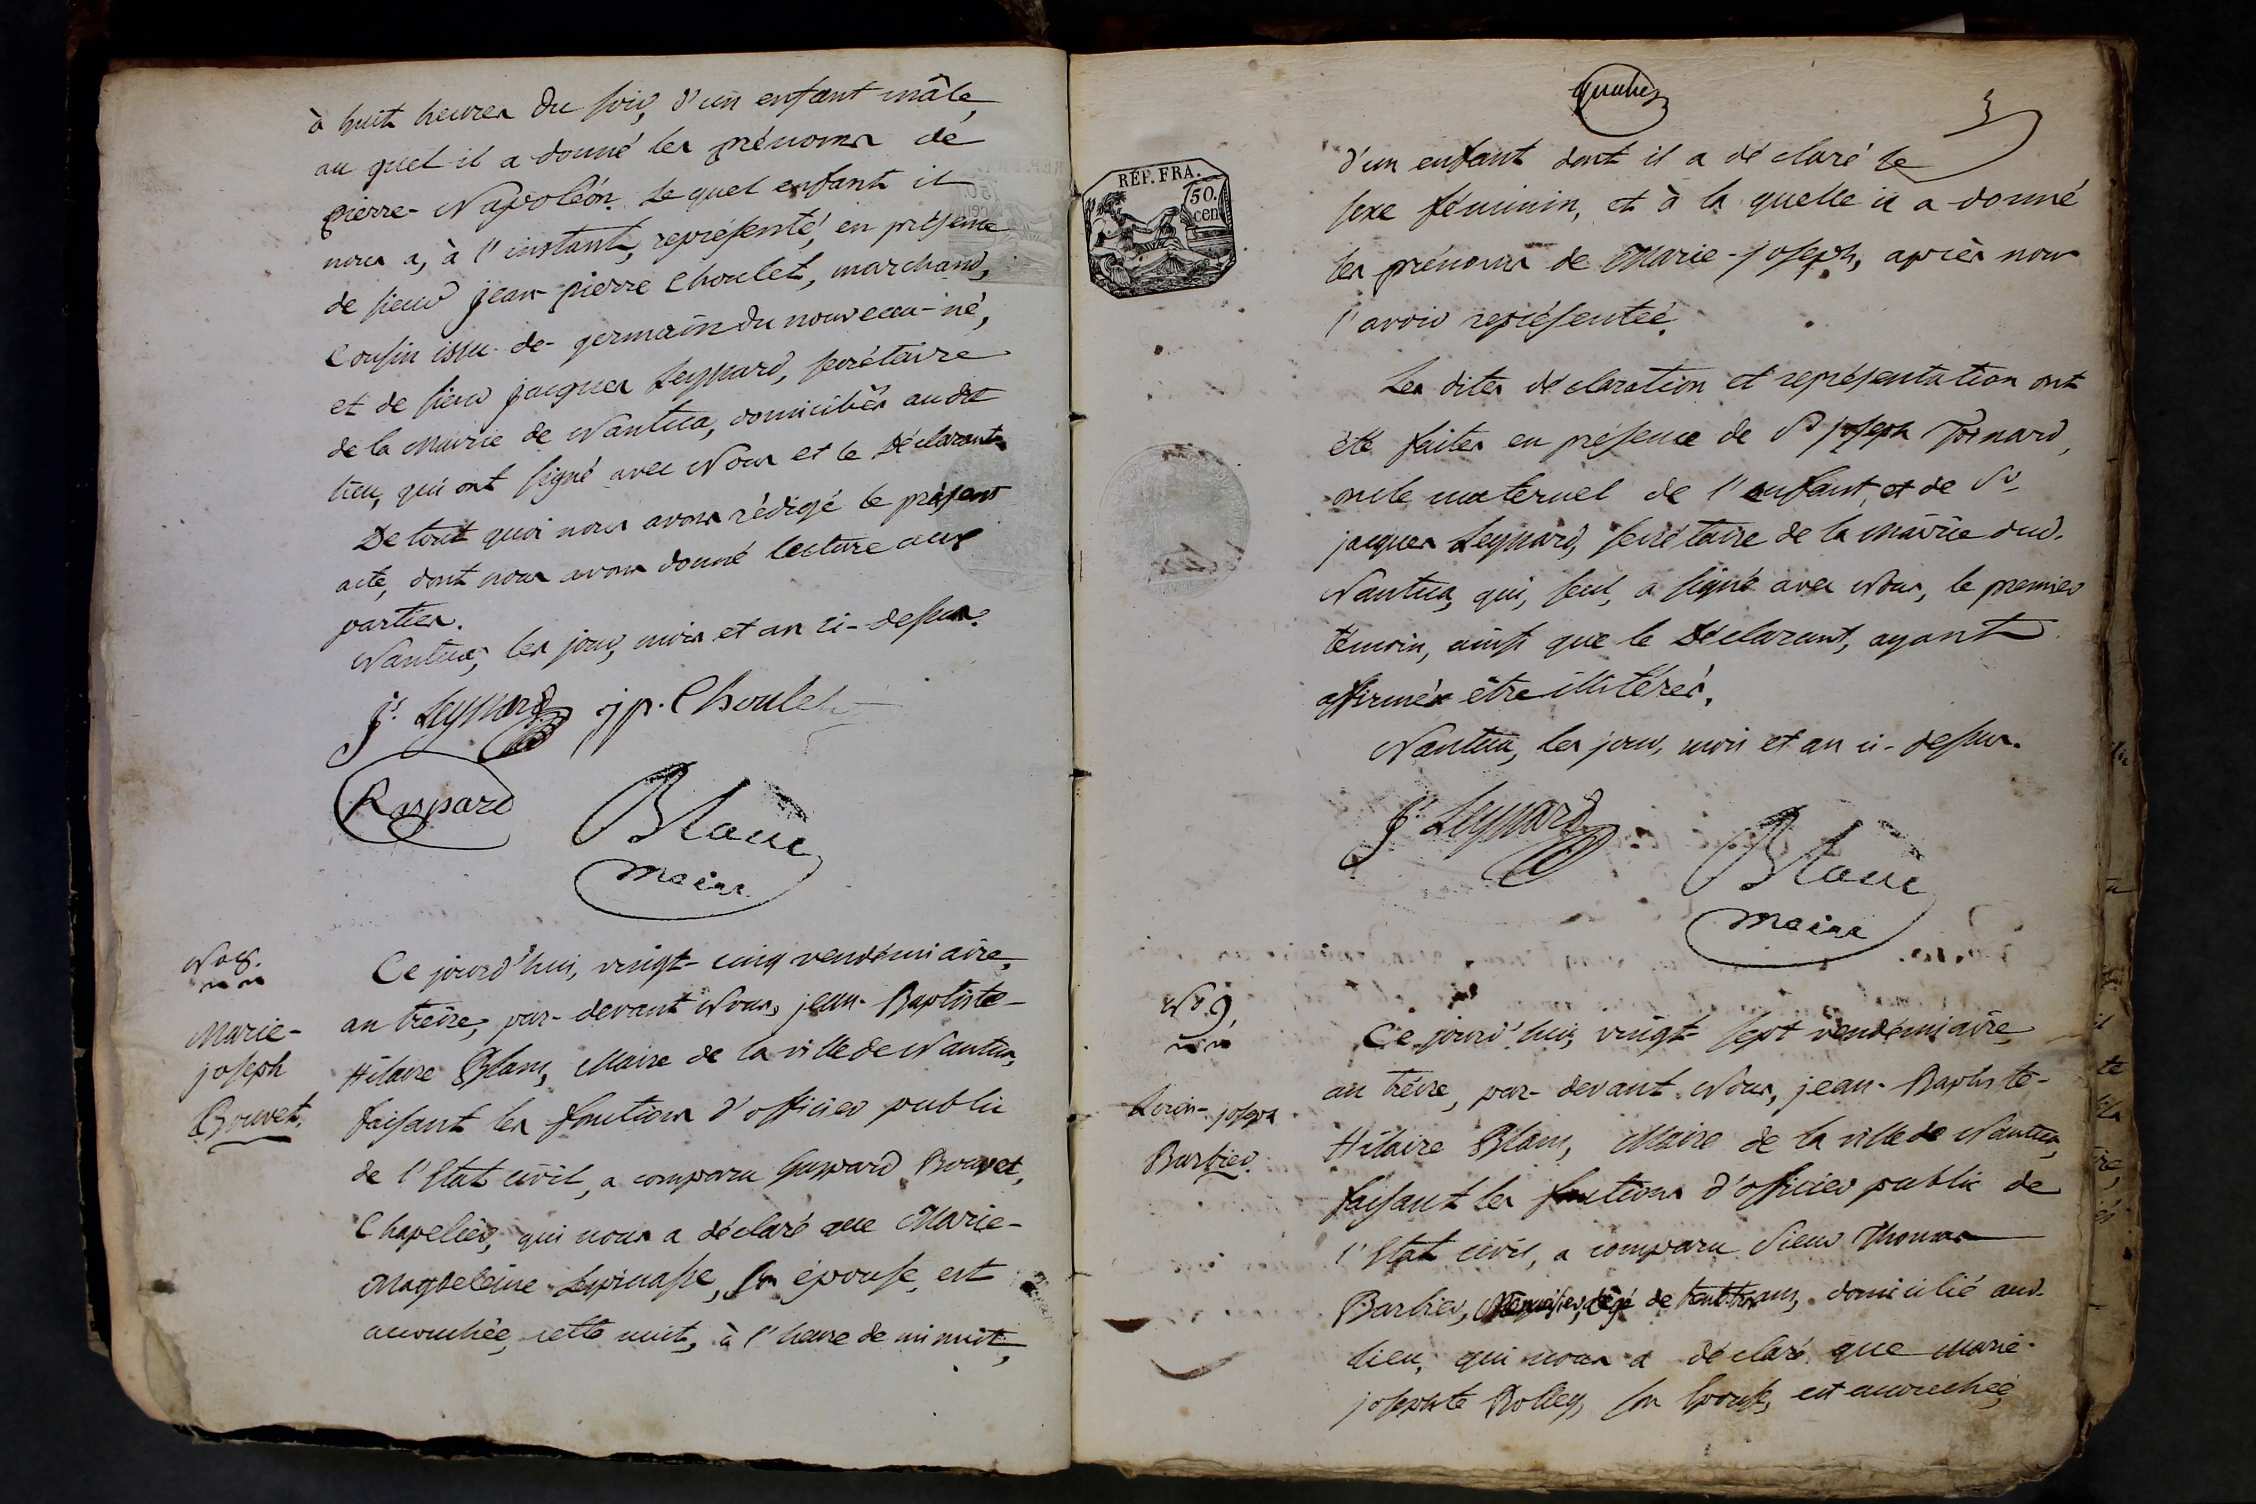 à huit heures du soir, d'un enfant mâle,
au quel il a donné les prénoms de
pierre-Napoléon. Le quel enfant il
nous a, à l'instant, représenté, en présence
de sieur jean-pierre Choulet, marchand,
Cousin issu-de-germain du nouveau-né,
et de sieur jacques Leyssard, secrétaire
de la Mairie de Nantua, domiciliés audit
lieu, qui ont signé avec Nous et le Déclarant.
De tout quoi nous avons rédigé le présent
acte, dont nous avons donné lecture aux
parties.
Nantua, les jour, mois et an ci-dessus.
Js. Leyssard jp. Choulet
Raspard
Blanc
maire
No 8.
Marie-
joseph
Bouvet.
Ce jourd'hui, vingt-cinq vendémiaire,
an treize, par-devant Nous, jean-Baptiste-
Hilaire Blanc, Maire de la ville de Nantua,
faisant les fonctions d'officier public
de l'Etat civil, a comparu Gaspard Bouvet,
Chapelier, qui nous a déclaré que Marie-
Magdeleine Lespinasse, son épouse, est
accouchée, cette nuit, à l'heure de minuit,
3
RÉP. FRA.
50.
cen
d'un enfant dont il a déclaré le
sexe féminin, et à la quelle il a donné
les prénoms de Marie-joseph, après nous
l'avoir représentée.
Les dites déclaration et représentation ont
été faites en présence de Sr joseph Tornard,
oncle maternel de l'enfant, et de Sr
jacques Leyssard, secrétaire de la Mairie dud.
Nantua, qui, seul, a signé avec Nous, le premier
témoin, ainsi que le Déclarant, ayant
affirmés être illitérés.
Nantua, les jour, mois et an ci-dessus.
Js. Leyssard
Blanc
maire
No 9.
joseph
Barbier.
Ce jourd'hui, vingt sept vendémiaire,
an treize, par-devant Nous, jean-Baptiste-
Hilaire Blanc, Maire de la ville de Nantua,
faisant les fonctions d'officier public de
l'Etat civil, a comparu Sieur Thomas
Barbier, âgé de ans, domicilié aud.
lieu, qui nous a déclaré que Marie-
josephte Rolley, son Epouse, est accouchée,